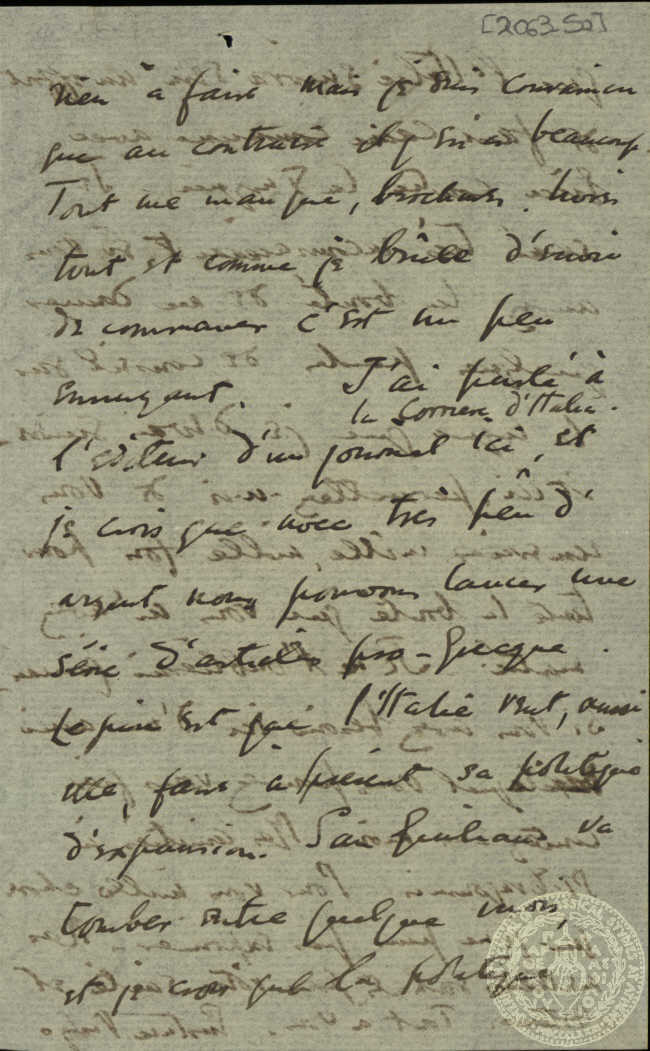 [2063-Sa]
rien à faire mais je suis convaincu
que au contraire il y en a beaucoup.
Tout me manque, brochures, livres
tout et comme je brûle d'envie
de commencer c'est un peu
ennuyant. J'ai parlé à
la Corriere d'Italia.
l'éditeur d'un journal ici, et
je crois que avec très peu d'
argent nous pouvons lancer une
série d'articles pro-Grecque.
Le pire est que l'Italie veut, aussi
elle, faire à présent sa politique
d'expansion. San Giuliano va
tomber entre quelque mois,
et je crois que la politique